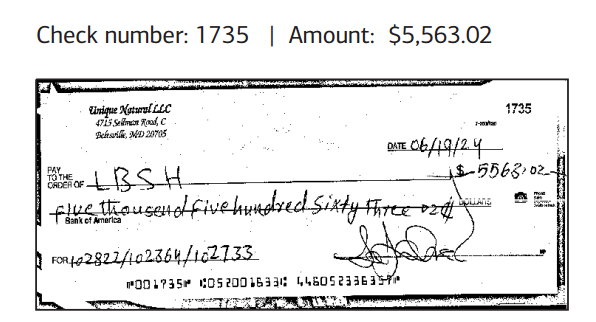 Check number: 1735 | Amount: $5,563.02
Unique Natural LLC
4715 Sellman Road, C
Beltsville, MD 20705
1735
DATE 06/19/24
PAY TO THE ORDER OF LBSH $ 5563.02
five thousend five hundred Sixty Three 02¢ DOLLARS
Bank of America
FOR 102822/102364/102733
⑈001735⑈ ⑆052001633⑆ 446052336357⑈